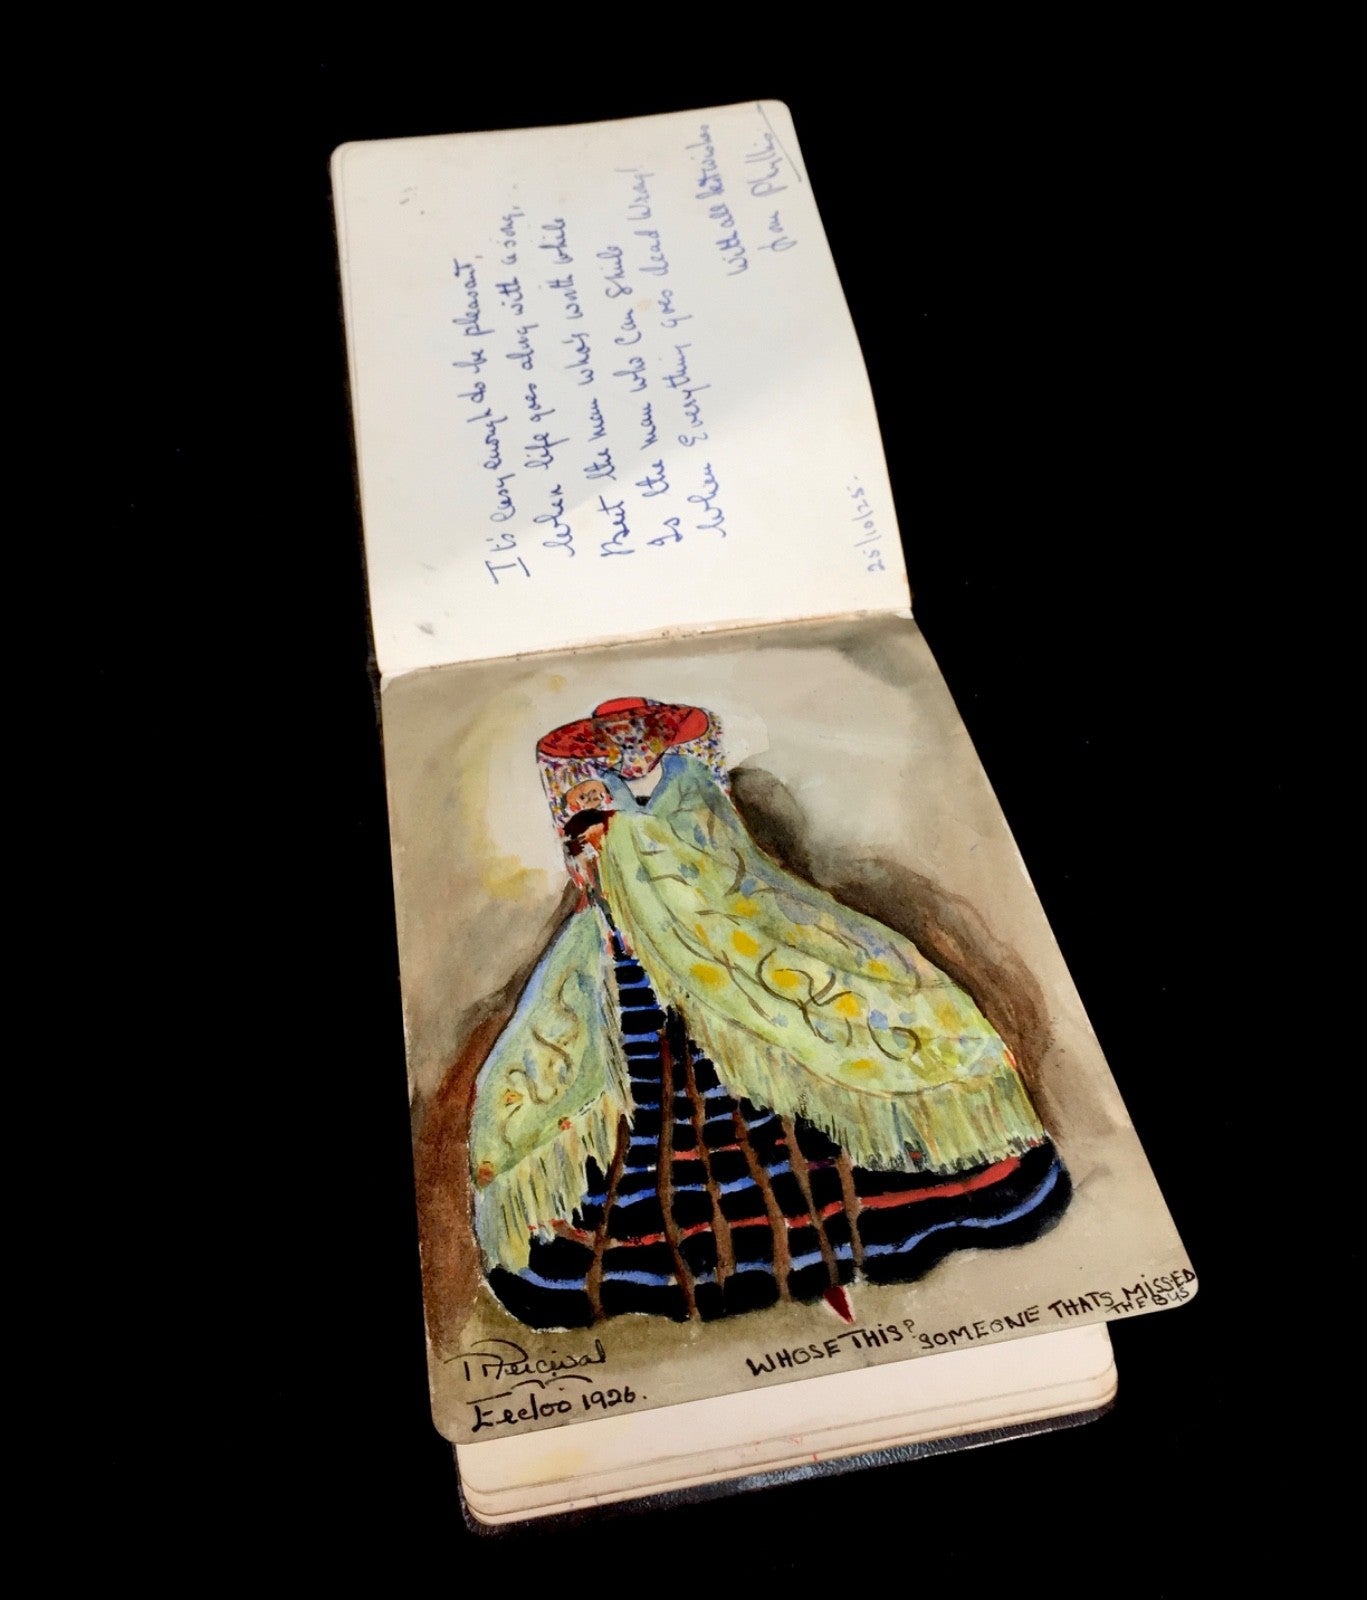 It's easy enough to be pleasant,
When life goes along with a song,
But the man who's worth while
Is the man who Can Smile
When Everything goes dead Wrong!
With all best wishes
from Phyllis
25/10/25.
WHOSE THIS? SOMEONE THATS MISSED
THE BUS
Percival
1926.